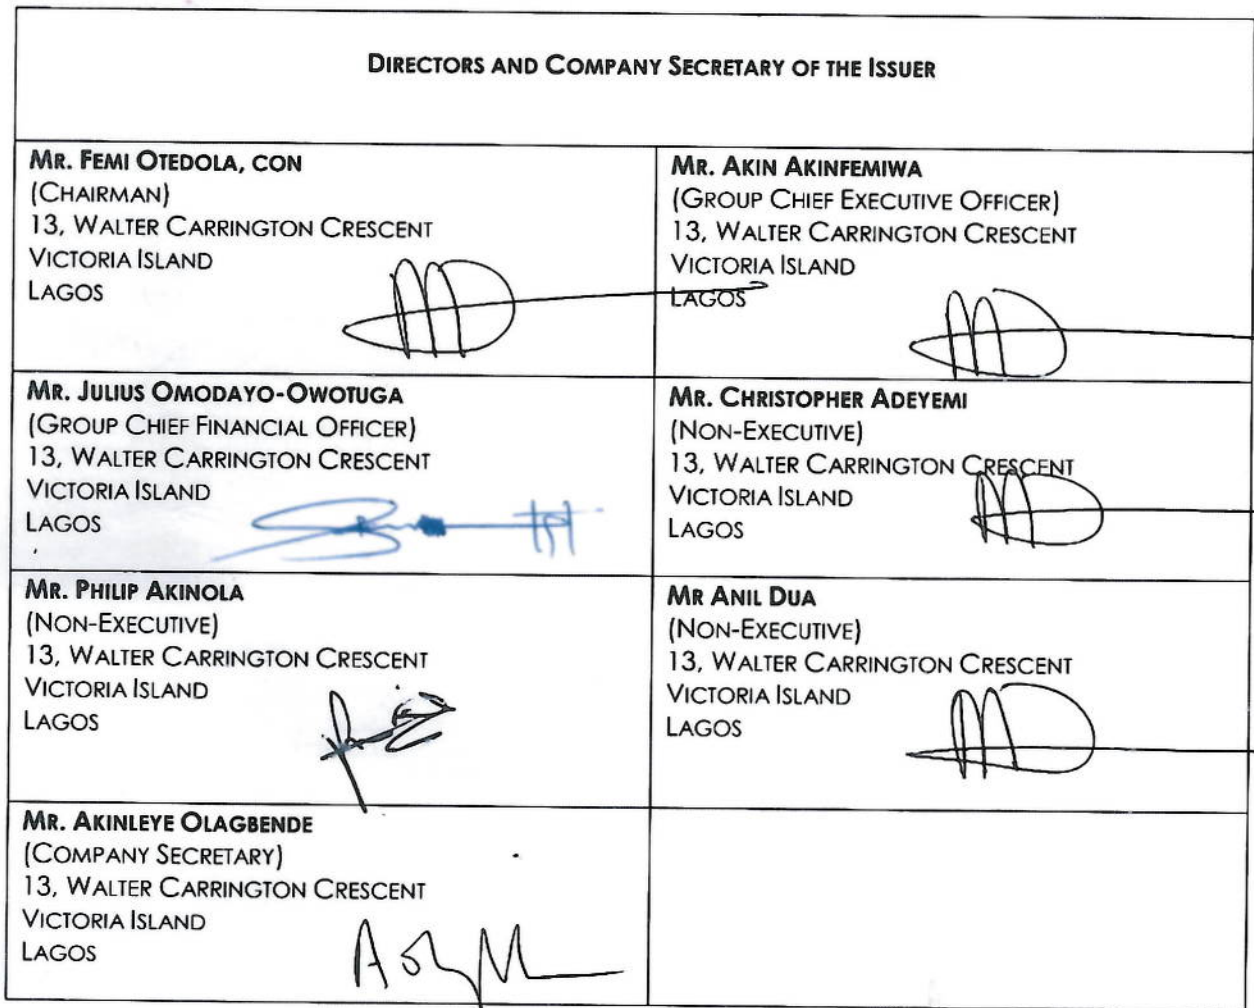 DIRECTORS AND COMPANY SECRETARY OF THE ISSUER
MR. FEMI OTEDOLA, CON
(CHAIRMAN)
13, WALTER CARRINGTON CRESCENT
VICTORIA ISLAND
LAGOS
MR. AKIN AKINFEMIWA
(GROUP CHIEF EXECUTIVE OFFICER)
13, WALTER CARRINGTON CRESCENT
VICTORIA ISLAND
LAGOS
MR. JULIUS OMODAYO-OWOTUGA
(GROUP CHIEF FINANCIAL OFFICER)
13, WALTER CARRINGTON CRESCENT
VICTORIA ISLAND
LAGOS
MR. CHRISTOPHER ADEYEMI
(NON-EXECUTIVE)
13, WALTER CARRINGTON CRESCENT
VICTORIA ISLAND
LAGOS
MR. PHILIP AKINOLA
(NON-EXECUTIVE)
13, WALTER CARRINGTON CRESCENT
VICTORIA ISLAND
LAGOS
MR ANIL DUA
(NON-EXECUTIVE)
13, WALTER CARRINGTON CRESCENT
VICTORIA ISLAND
LAGOS
MR. AKINLEYE OLAGBENDE
(COMPANY SECRETARY)
13, WALTER CARRINGTON CRESCENT
VICTORIA ISLAND
LAGOS